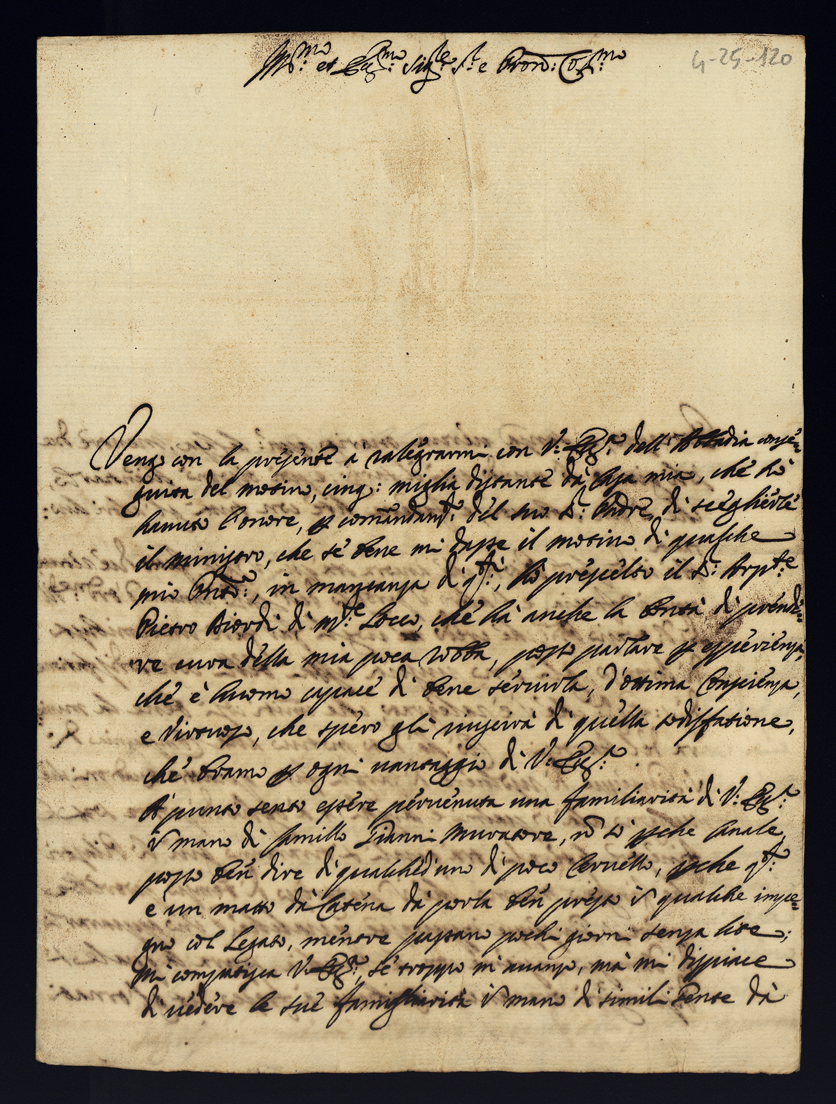 Ill:mo et Ecc:mo Sig:re S:r e Pron: Co:mo
4-25-120
Vengo con la presente à ralegrarmi con V: Ecc:a dell' Abbadia conse=
guita del mosino, cinq: miglia distante dà Casa mia, che hà
havuto l'onore, p comandam:to del suo S:r Padre, di scegliérle
il ministro, che sé bene mi dasse il mosino di qualche
mio, in mancanza di q:ti, hò préscelto il S:r Arpte
Pietro Biordi di M:te Locco, ché hà anche la bontà di prende=
re cura della mia poca robba, posso parlare p esperienza,
ché è huomo capace di bene servirla, d'ottima Conscienza,
e Virtuoso, che spéro gli riuscirà di quella sodisfatione,
ché bramo p ogni vantaggio di V: Ecc:a.
A punto sento essere pervenuta una familiarità di V: Ecc:a
in mano di Camillo Gianni Muratore, nõ sò pche quale
posso ben dire di qualched'uno di poco Cervello, pche q:to
e un matto dà Catena dà porla bén présto in qualche impe=
gno col Legato, méntre passano pochi giorni senza lite;
mi compatisca V: Ecc:a, sé troppo mi avanzo, mà mi dispiace
di védére le sué famigliarità in mano di simili Gente dà